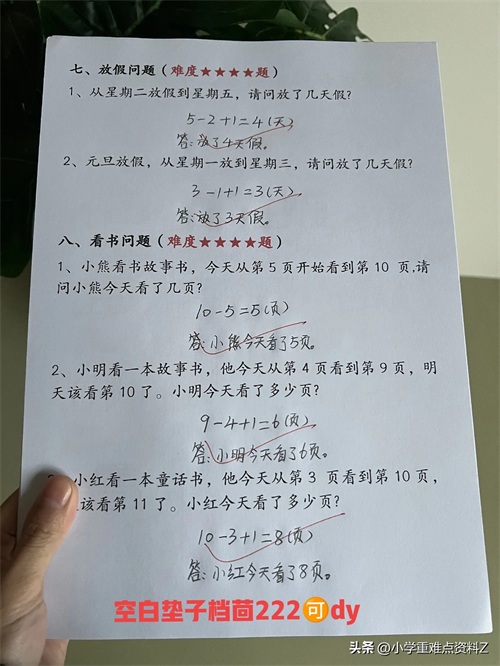 七、放假问题（难度★★★★题）
1、从星期二放假到星期五，请问放了几天假？
5-2+1=4(天)
答:放了4天假。
2、元旦放假，从星期一放到星期三，请问放了几天假？
3-1+1=3(天)
答:放了3天假。
八、看书问题（难度★★★★题）
1、小熊看书故事书，今天从第5页开始看到第10 页,请
问小熊今天看了几页？
10-5=5(页)
答:小熊今天看了5页。
2、小明看一本故事书，他今天从第4页看到第9页，明
天该看第10了。小明今天看了多少页？
9-4+1=6(页)
答:小明今天看了6页。
小红看一本童话书，他今天从第3 页看到第10页，
该看第11了。小红今天看了多少页？
10-3+1=8(页)
答:小红今天看了8页。
空白垫子档茴222可dy
头条 @小学重难点资料Z